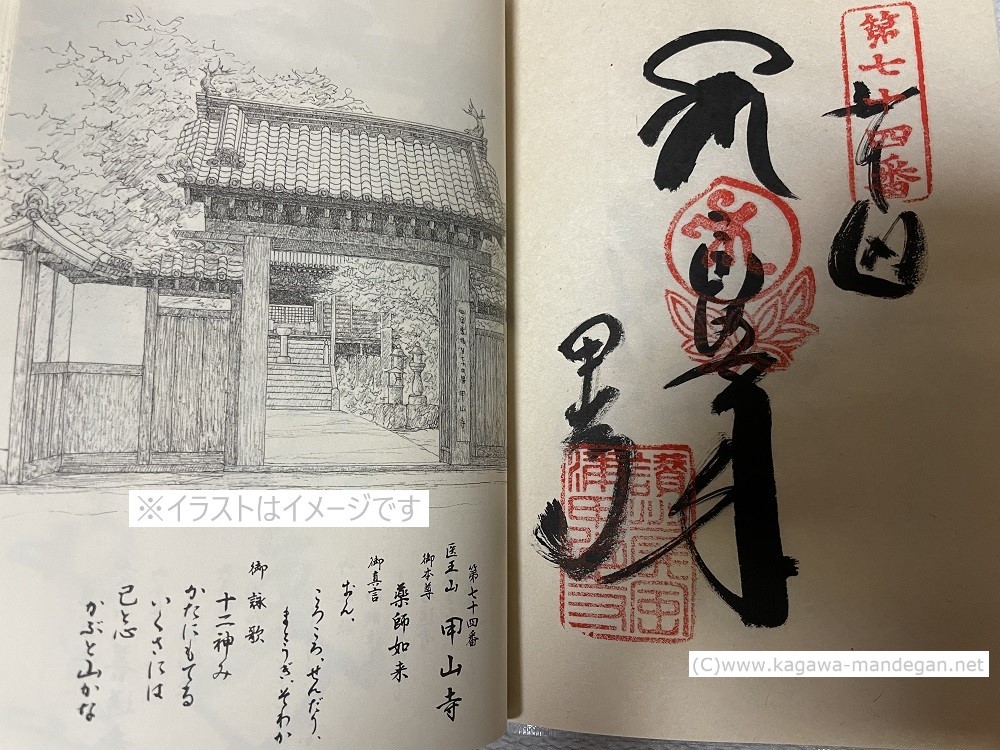 ※イラストはイメージです
第七十四番
医王山 甲山寺
御本尊
薬師如来
御真言
おん、
ころころ、せんだり、
まとうぎ、そわか
御詠歌
十二神み
かたにもてる
いくさには
己と心
かぶと山かな
第七十四番
甲山寺
(C)www.kagawa-mandegan.net